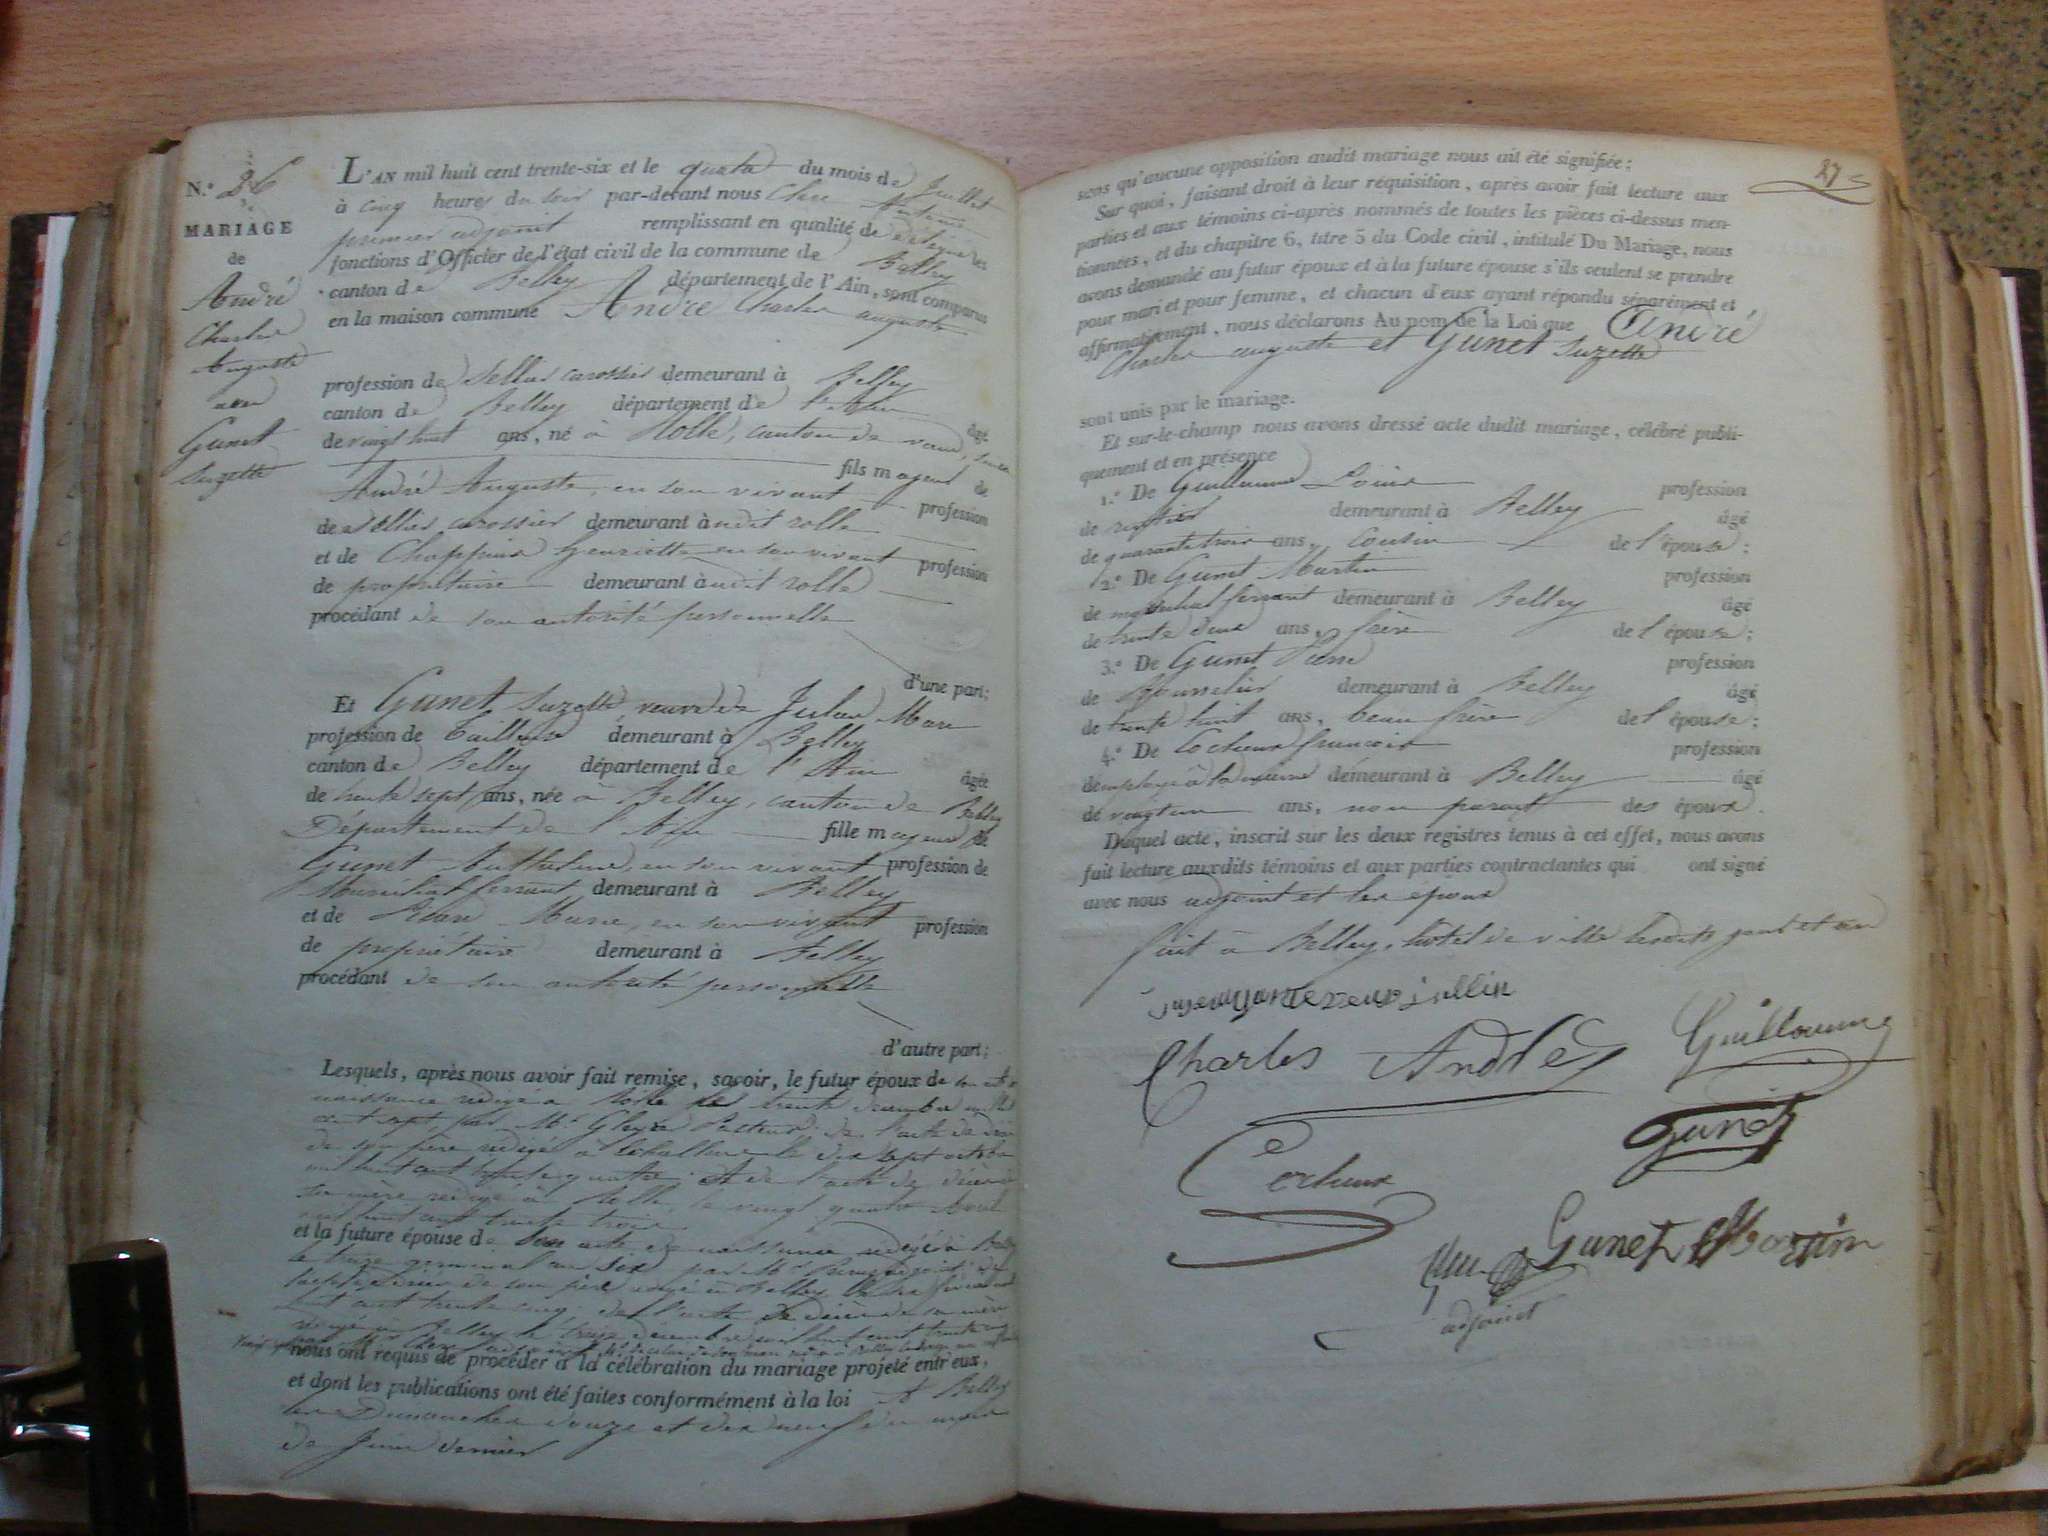 N.º 26
MARIAGE
de
André
Charles
Auguste
avec
Gunet
Suzette
L'AN mil huit cent trente-six et le quatre du mois de Juillet
à cinq heures du soir par-devant nous
premier adjoint remplissant en qualité de délégué les
fonctions d'Officier de l'état civil de la commune de Belley
canton de Belley département de l'Ain, sont comparus
en la maison commune André Charles auguste
profession de Sellier carossier demeurant à Belley
canton de Belley département de l'ain âgé
de vingt huit ans, né à Rolle, canton de vaud,
fils majeur de
André Auguste, en son vivant profession
de Sellier carossier demeurant à udit rolle
et de Choppin henriette en son vivant profession
de propriétaire demeurant à udit rolle
procédant de son autorité personnelle
d'une part;
Et Gunet Suzette veuve de Marc
profession de Tailleur demeurant à Belley
canton de Belley département de l'Ain âgée
de trente sept ans, née à Belley, canton de Belley
Département de l'Ain fille majeure de
Gunet Anthelme, en son vivant profession de
Maréchal ferrant demeurant à Belley
et de Marie, en son vivant profession
de propriétaire demeurant à Belley
procédant de son autorité personnelle
d'autre part;
Lesquels, après nous avoir fait remise, savoir, le futur époux de son acte
naissance rédigé à Rolle le trente
cent sept, par Mr Pasteur de l'acte de
de son père rédigé à le dix sept octobre
mil huit cent trente quatre et de l'acte de décès
sa mère rédigé à Rolle, le vingt quatre Avril
mil huit cent trente trois
et la future épouse de Son acte de naissance rédigé à Belley
le treize germinal an six par Mr
l'acte de décès de son père rédigé à Belley
huit cent trente cinq, de l'acte de décès de sa mère
rédigé à Belley le treize décembre mil huit cent trente
nous ont requis de procéder à la célébration du mariage projeté entr'eux,
et dont les publications ont été faites conformément à la loi à Belley
les Dimanches douze et dix neuf du mois
de Juin dernier
27
sions qu'aucune opposition audit mariage nous ait été signifiée;
Sur quoi, faisant droit à leur réquisition, après avoir fait lecture aux
parties et aux témoins ci-après nommés de toutes les pièces ci-dessus men-
tionnées, et du chapitre 6, titre 5 du Code civil, intitulé Du Mariage, nous
avons demandé au futur époux et à la future épouse s'ils veulent se prendre
pour mari et pour femme, et chacun d'eux ayant répondu séparément et
affirmativement, nous déclarons Au nom de la Loi que André
Charles auguste et Gunet Suzette
sont unis par le mariage.
Et sur-le-champ nous avons dressé acte dudit mariage, célébré publi-
quement et en présence
1.º De Guillaume Louis profession
de rentier demeurant à Belley âgé
de quarante trois ans, Cousin de l'épouse;
2.º De Gunet Martin profession
de maréchal ferrant demeurant à Belley âgé
de trente deux ans, frère de l'épouse;
3.º De Gunet Pierre profession
de demeurant à Belley âgé
de trente huit ans, beau frère de l'épouse;
4.º De Cocheux françois profession
d'employé à la mairie demeurant à Belley âgé
de vingt un ans, non parent des époux.
Duquel acte, inscrit sur les deux registres tenus à cet effet, nous avons
fait lecture auxdits témoins et aux parties contractantes qui ont signé
avec nous adjoint et les époux
fait à Belley, hotel de ville lesdits jour et an
Charles André Guillaume
Gunet
Cocheux
Gunet Martin
adjoint